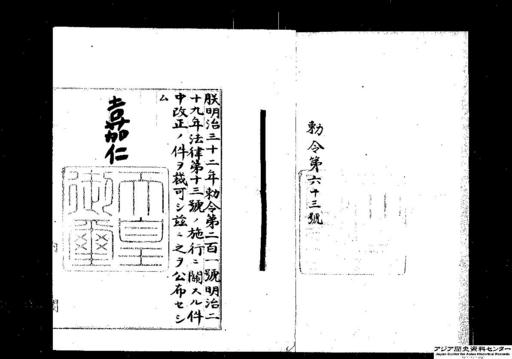 勅令第六十三號
朕明治三十二年勅令第二百一號明治二
十九年法律第十三號ノ施行ニ關スル件
中改正ノ件ヲ裁可シ茲ニ之ヲ公布セシ
ム
嘉仁
天皇
御璽
アジア歴史資料センター
Japan Center for Asian Historical Records